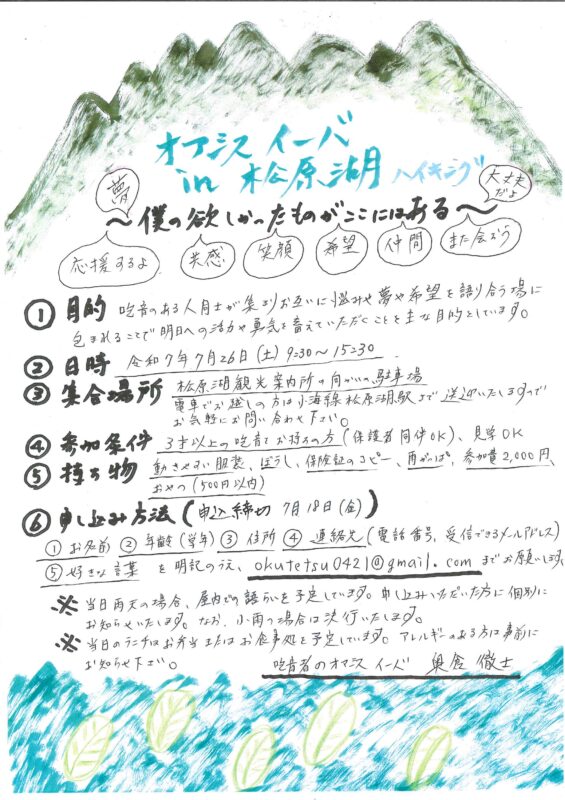 オアシス イーバ
in 松原湖 ハイキング
夢
大丈夫だよ
～僕の欲しかったものがここにはある～
応援するよ 共感 笑顔 希望 仲間 また会おう
① 目的 吃音のある人同士が集まりお互いに悩みや夢や希望を語り合う場に
包まれることで明日への活力や勇気を蓄えていただくことを主な目的としています。
② 日時 令和7年7月26日(土) 9:30～15:30
③ 集合場所 松原湖観光案内所の向かいの駐車場
電車でお越しの方は小海線松原湖駅まで送迎いたしますので
お気軽にお問い合わせ下さい。
④ 参加条件 3才以上の吃音をお持ちの方(保護者同伴OK)、見学OK
⑤ 持ち物 動きやすい服装、ぼうし、保険証のコピー、雨がっぱ、参加費2,000円、
おやつ(500円以内)
⑥ 申し込み方法(申込締切 7月18日(金))
① お名前 ② 年齢(学年) ③ 住所 ④ 連絡先(電話番号、受信できるメールアドレス)
⑤ 好きな言葉 を明記のうえ、okutetsu0421@gmail.comまでお願いします。
※ 当日雨天の場合、屋内での語らいを予定しています。申し込みいただいた方に個別に
お知らせいたします。なお、小雨の場合は決行いたします。
※ 当日のランチはお弁当またはお食事処を予定しています。アレルギーのある方は事前に
お知らせ下さい。
吃音者のオアシス イーバ 奥倉 徹士